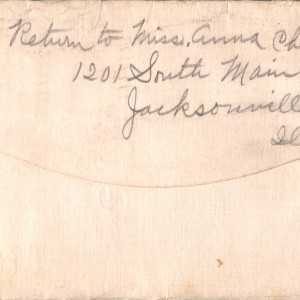 Return to Miss. Anna Ch
1201 South Main
Jacksonvill
Il